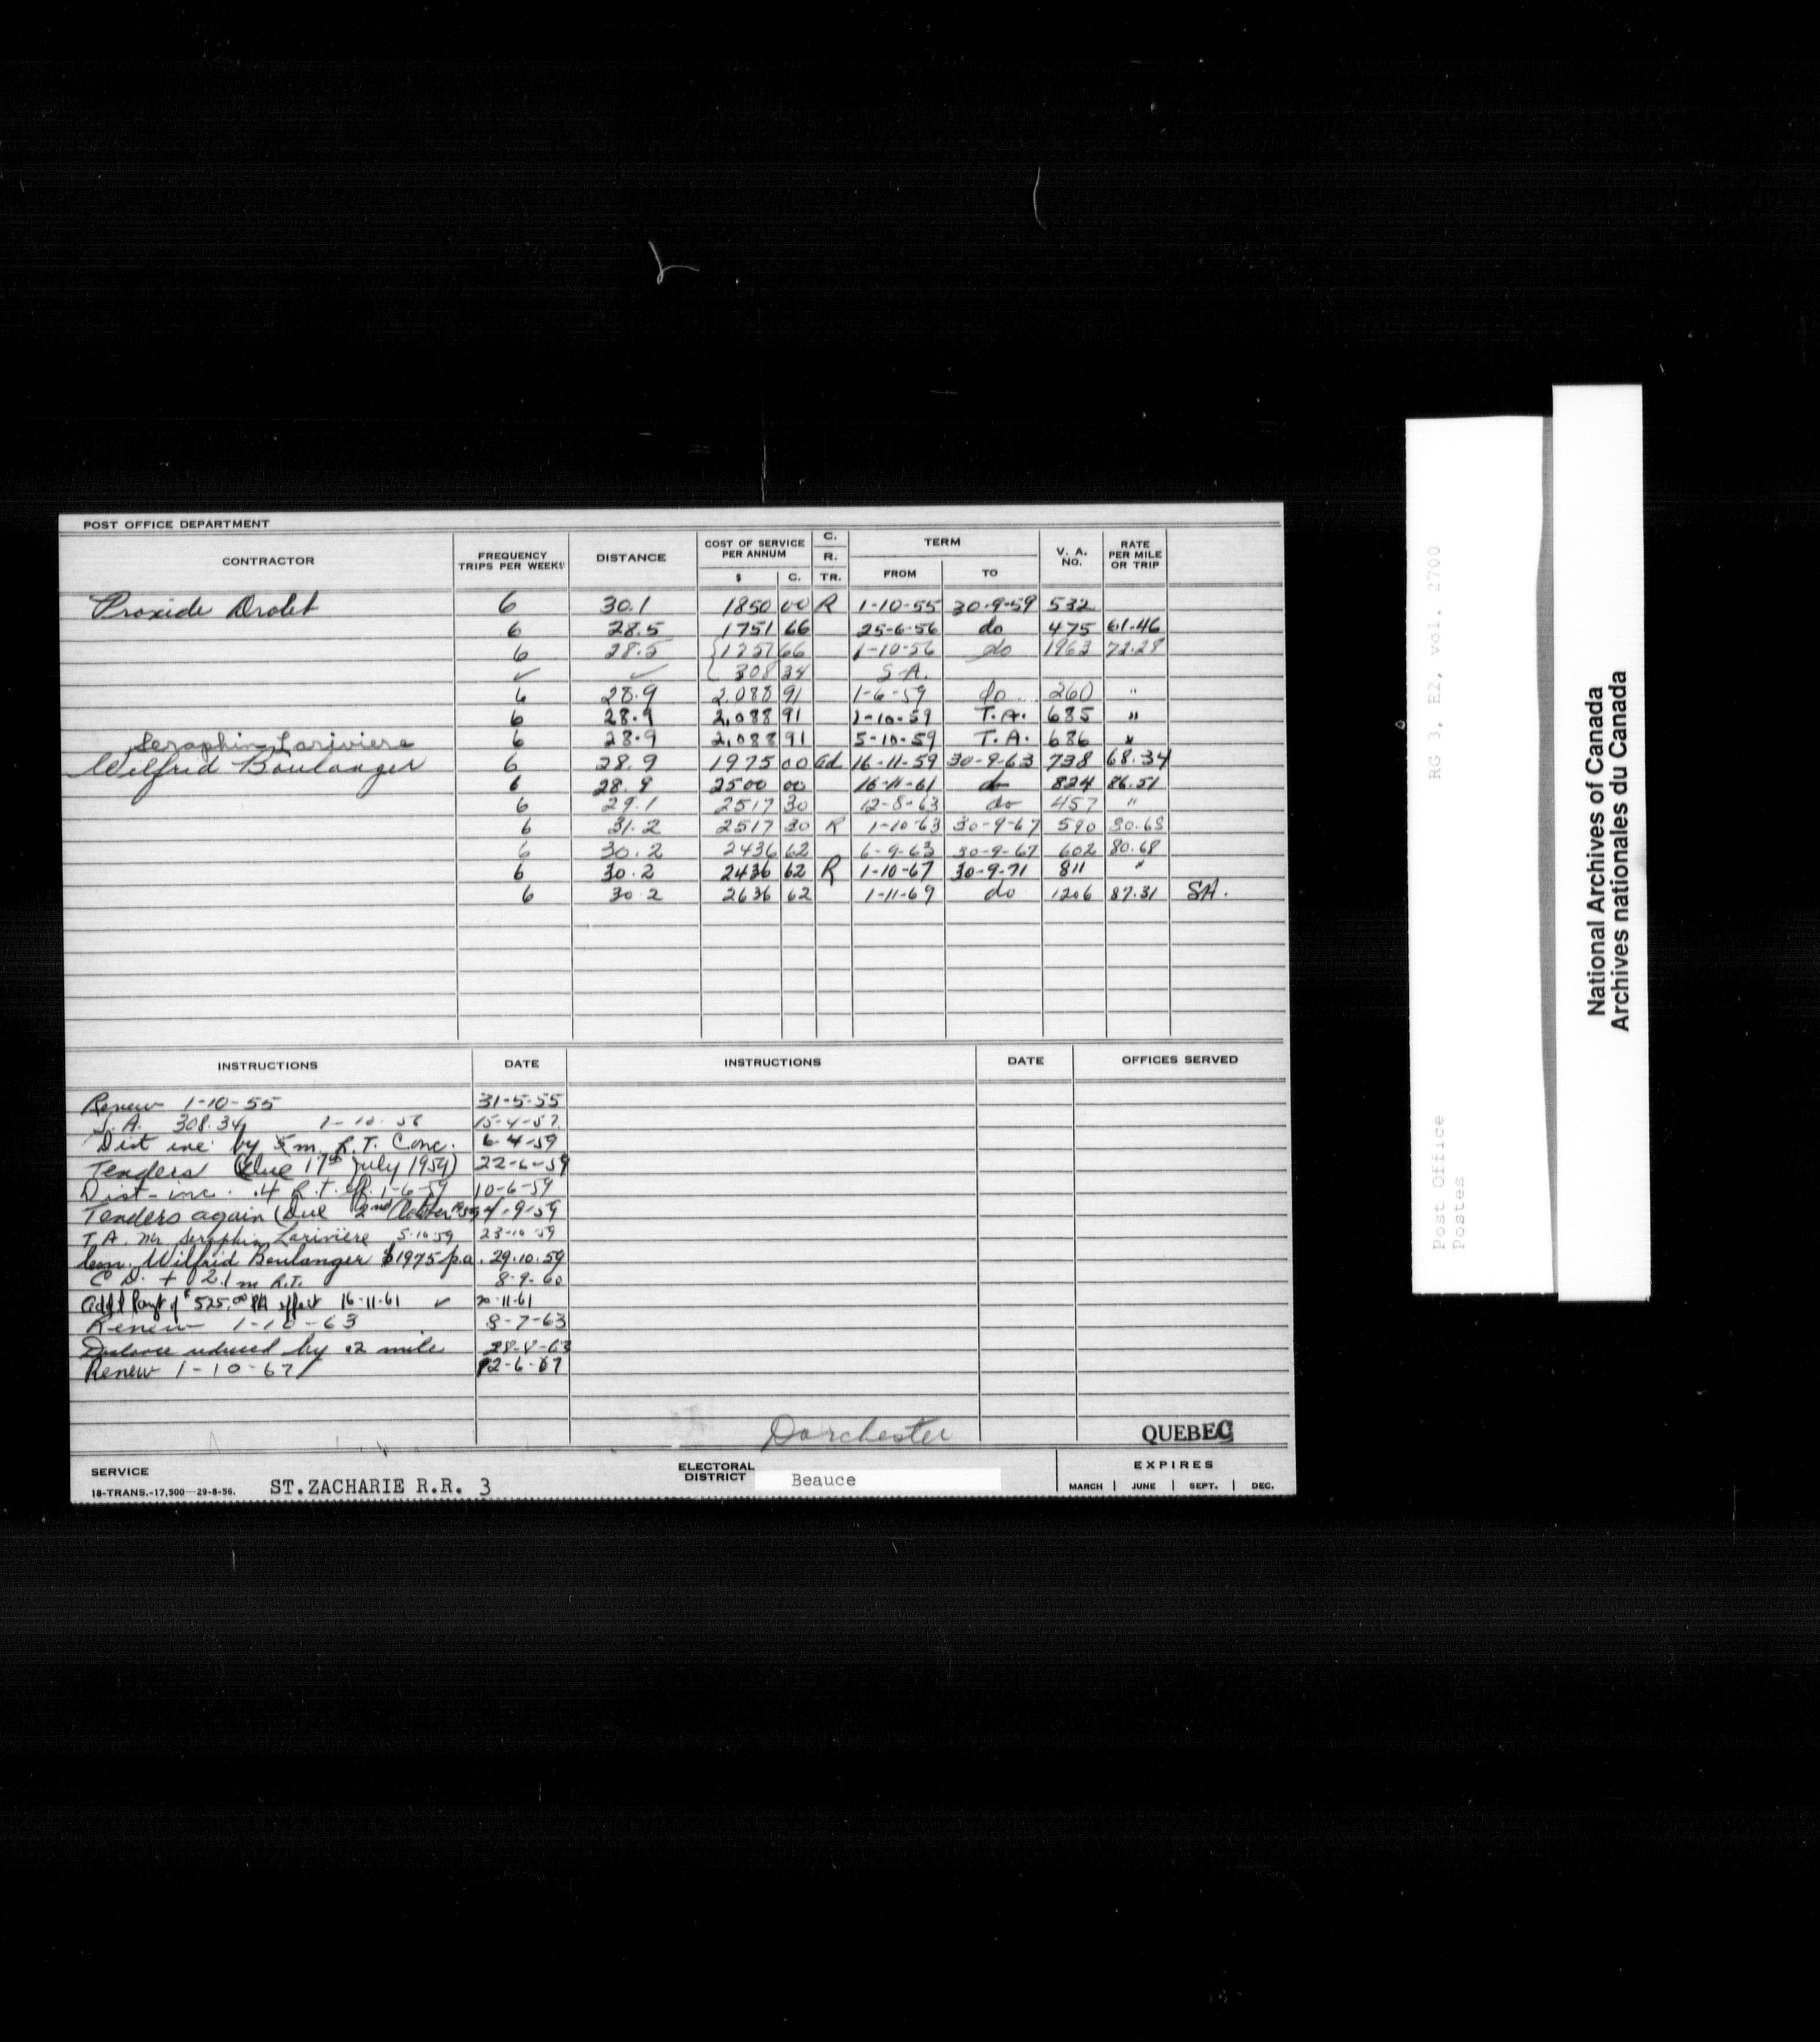 POST OFFICE DEPARTMENT
CONTRACTOR FREQUENCY TRIPS PER WEEK DISTANCE COST OF SERVICE PER ANNUM $ C. C. R. TR. TERM FROM TO V. A. NO. RATE PER MILE OR TRIP
Proxide Drolet 6 30.1 1850 00 R 1-10-55 30-9-59 532
6 28.5 1751 66 25-6-56 do 475 61.46
6 28.5 1751 66 1-10-56 do 1963 72.28
✓ ✓ 308 34 S.A.
6 28.9 2,088 91 1-6-59 do 260 "
6 28.9 2,088 91 1-10-59 T.A. 685 "
Seraphin Lariviere 6 28.9 2,088 91 5-10-59 T.A. 686 "
Wilfrid Boulanger 6 28.9 1975 00 Ad 16-11-59 30-9-63 738 68.34
6 28.9 2500 00 16-11-61 do 824 86.51
6 29.1 2517 30 12-8-63 do 457 "
6 31.2 2517 30 R 1-10-63 30-9-67 590 80.68
6 30.2 2436 62 6-9-63 30-9-67 602 80.68
6 30.2 2436 62 R 1-10-67 30-9-71 811 "
6 30.2 2636 62 1-11-69 do 1206 87.31 SA.
INSTRUCTIONS DATE INSTRUCTIONS DATE OFFICES SERVED
Renew 1-10-55 31-5-55
S.A. 308.34 1-10-56 15-4-57
Dist inc. by m. R.T. Conc. 6-4-59
Tenders (due 17th July 1959) 22-6-59
Dist-inc. .4 R.T. eff. 1-6-59 10-6-59
Tenders again (Due 2nd October 4-9-59
T.A. Mr Seraphin Larivière 5-10-59 23-10-59
Wilfrid Boulanger $1975 p.a. 29.10.59
C D. + 2.1 m R.T. 8-9-60
Add'l Paymt of $525.00 PA effect 16-11-61 ✓ 20-11-61
Renew 1-10-63 8-7-63
Distance reduced by .2 mile 28-8-63
Renew 1-10-67 12-6-67
Dorchester QUEBEC
SERVICE ST.ZACHARIE R.R. 3 ELECTORAL DISTRICT Beauce EXPIRES
18-TRANS.-17,500—29-8-56. MARCH | JUNE | SEPT. | DEC.
RG 3, E2, vol. 2700
Post Office
Postes
National Archives of Canada
Archives nationales du Canada